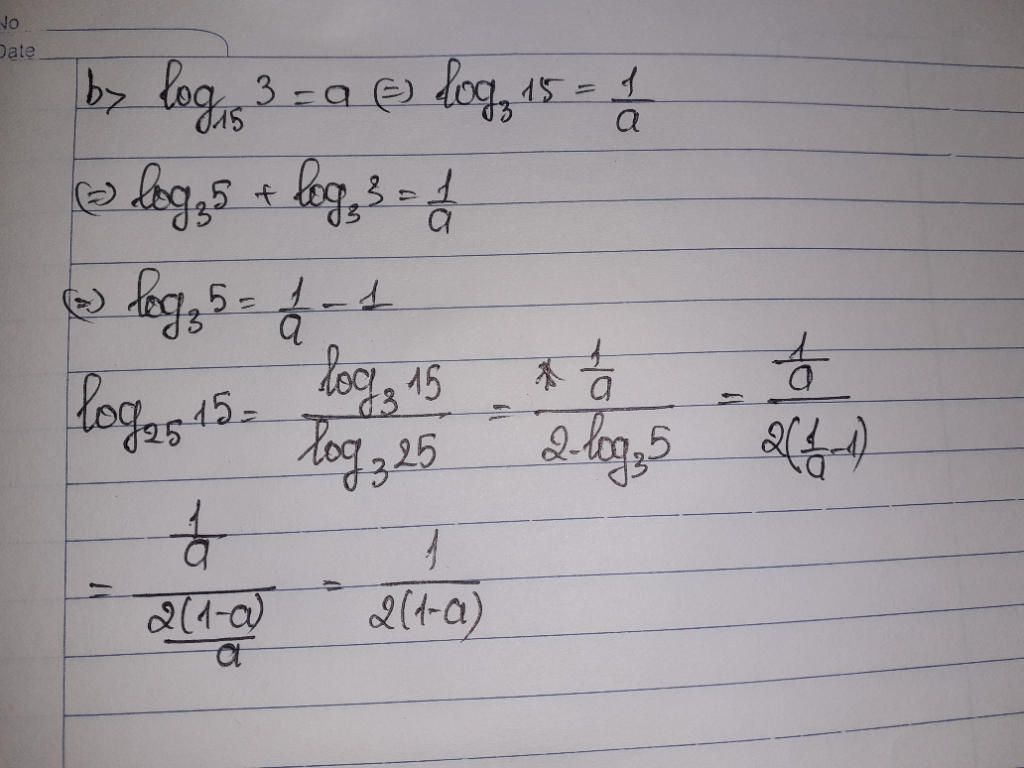 No
Date
b> log₁₅ 3 = a (=) log₃ 15 = 1/a
(=) log₃ 5 + log₃ 3 = 1/a
(=) log₃ 5 = 1/a - 1
log₂₅ 15 = (log₃ 15)/(log₃ 25) = (1/a)/(2.log₃ 5) = (1/a)/(2(1/a - 1))
= (1/a)/(2(1-a)/a) = 1/(2(1-a))